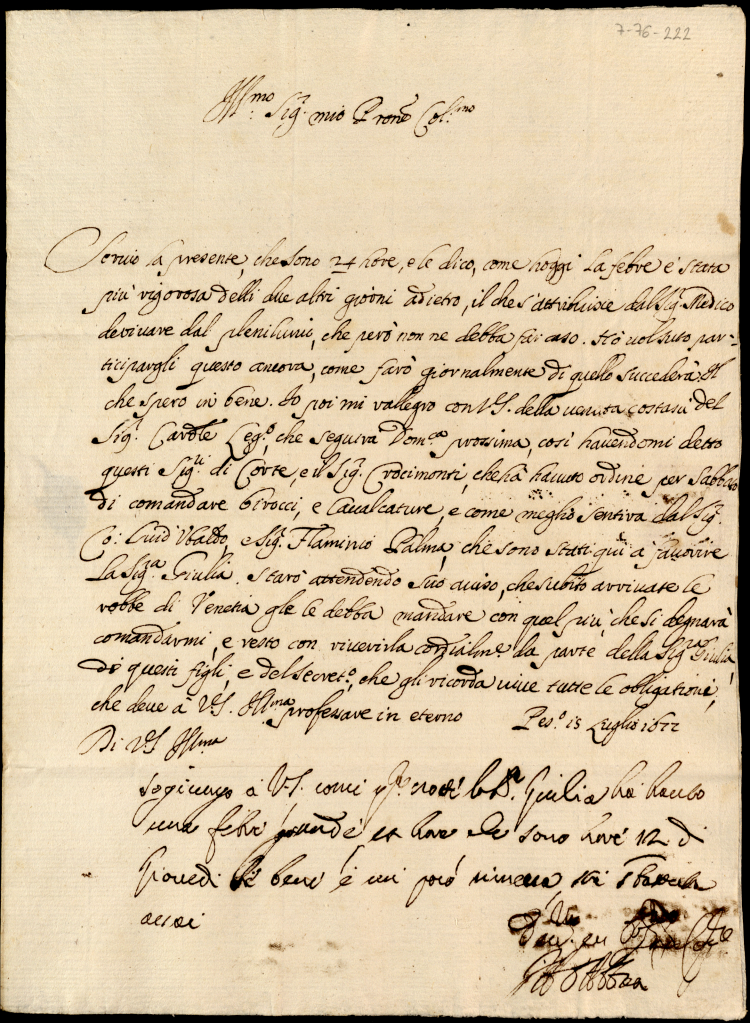 7-76-222
Ill.mo Sig.r mio Prone Col.mo
Scrivo la presente, che sono 24 hore, e le dico, come hoggi la febre è stata
più vigorosa delli due altri giorni adietro, il che s'attribuisce dal Sig.r Medico
derivare dal plenilunio, che però non ne debba far caso. Hò volsuto par-
ticipargli questo ancora, come farò giornalmente di quello succederà, Il
che spero in bene. Io poi mi rallegro con V.S. della venuta costasù del
Sig.r Cardle Leg.o, che seguirà Dom.ca prossima, così havendomi detto
questi Sig.ri di Corte, e il Sig.r Crocimonti, che hà havuto ordine per Sabbato
di comandare birocci, e Cavalcature, e come meglio sentirà dal Sig.r
Co: Luid'Ubaldo, e Sig.r Flaminio Palma, che sono stati qui à favorire
la Sig.ra Giulia. Starò attendendo suo aviso, che subito arrivate le
robbe di Venetia gle le debba mandare con quel più, che si degnarà
comandarmi, e resto con riverirla cordialm.e da parte della Sig.ra Giulia,
di questi figli, e del Secret.o, che gli ricorda vive tutte le obligationi,
che deve à V.S. Ill.ma professare in eterno Pes.o 15 Luglio 1677
Di V.S. Ill.ma
sogiungo à V.S. come notte la Giulia ha hauto
una febre grande et hora che sono hore 12 di
Giovedi sè bene è un poco
assai